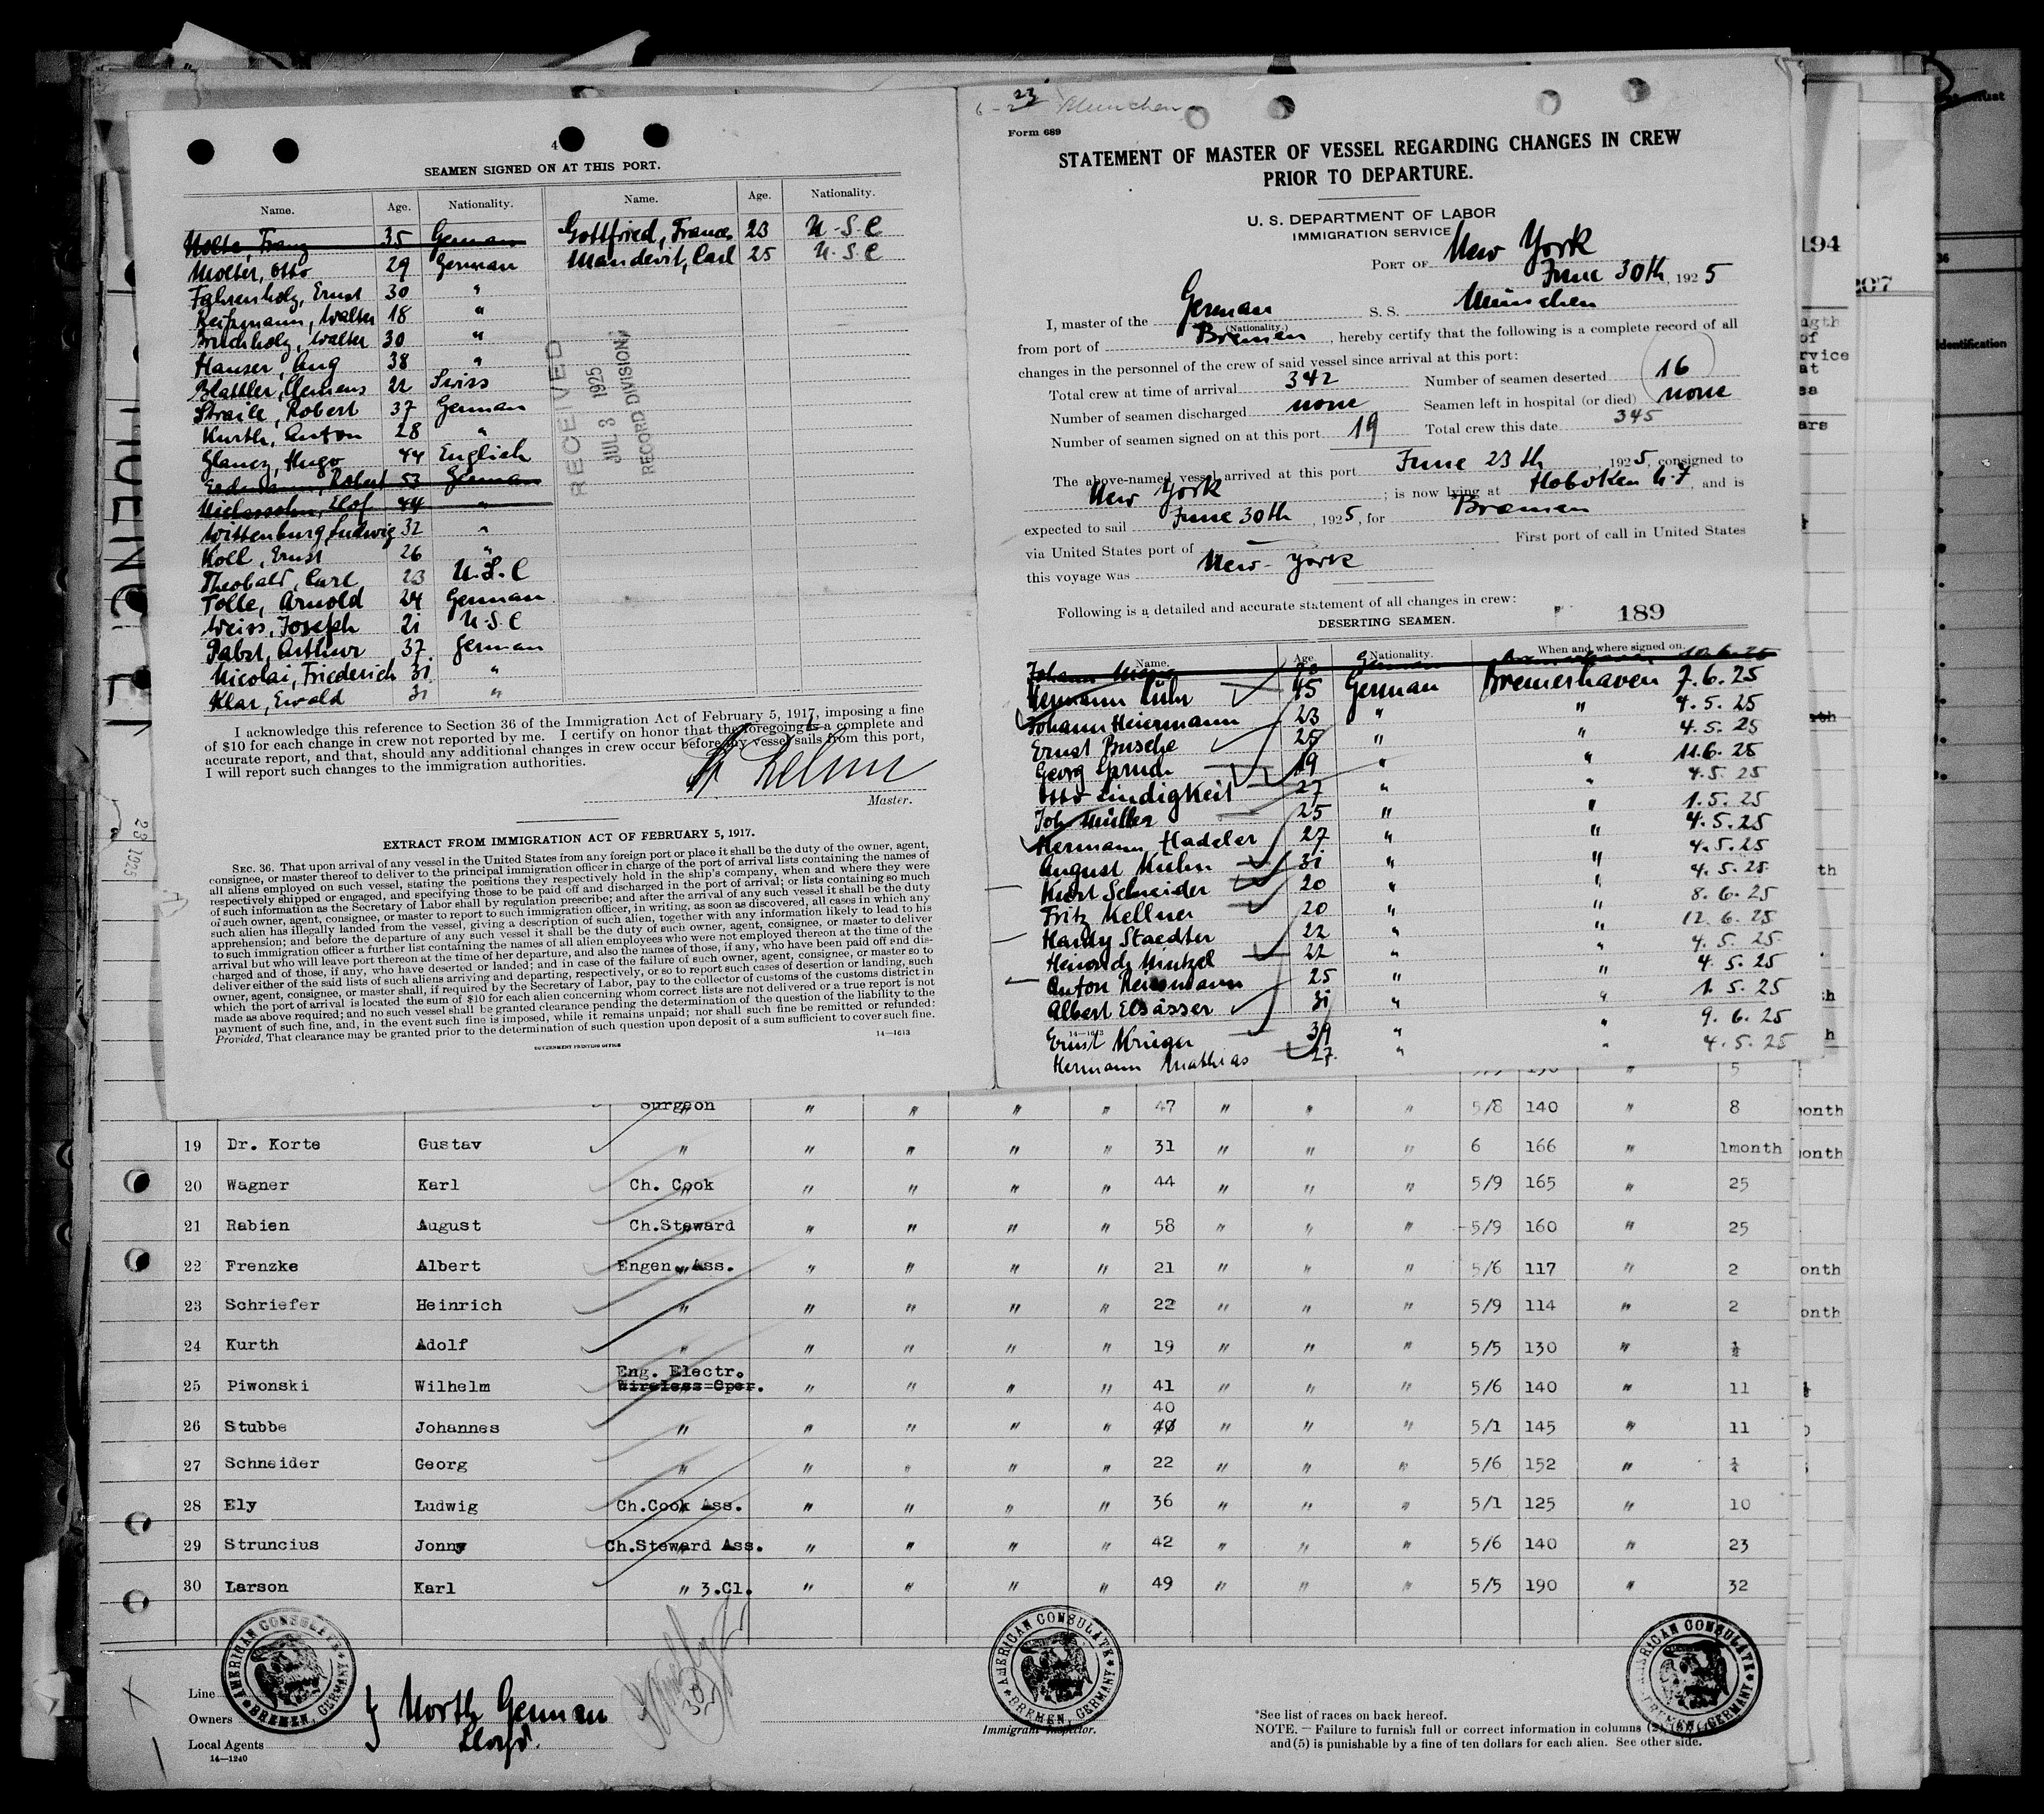 4
SEAMEN SIGNED ON AT THIS PORT.
Name. Age. Nationality. Name. Age. Nationality.
Nolte, Franz 35 German Gottfried, Frances 23 U.S.C
Molter, Otto 29 German Mandevit, Carl 25 U.S.C
Fahrenholz, Ernst 30 "
Reitzmann, Walter 18 "
Buchholz, Walter 30 "
Hauser, Aug 38 "
Blättler, Clemens 22 Swiss
Straile, Robert 37 German
Kurth, Anton 28 "
Glancz, Hugo 44 Englich
Robert 53 German
Elof 44 "
Wittenburg, Ludwig 32 "
Koll, Ernst 26 "
Theobald, Carl 23 U.S.C
Tolle, Arnold 24 German
Weiss, Joseph 21 U.S.C
Pabst, Arthur 37 German
Nicolai, Friederich 31 "
Klar, Ewald 31 "
RECEIVED
JUL 3 1925
RECORD DIVISION
I acknowledge this reference to Section 36 of the Immigration Act of February 5, 1917, imposing a fine
of $10 for each change in crew not reported by me. I certify on honor that the foregoing is a complete and
accurate report, and that, should any additional changes in crew occur before my vessel sails from this port,
I will report such changes to the immigration authorities.
Master.
EXTRACT FROM IMMIGRATION ACT OF FEBRUARY 5, 1917.
SEC. 36. That upon arrival of any vessel in the United States from any foreign port or place it shall be the duty of the owner, agent,
consignee, or master thereof to deliver to the principal immigration officer in charge of the port of arrival lists containing the names of
all aliens employed on such vessel, stating the positions they respectively hold in the ship's company, when and where they were
respectively shipped or engaged, and specifying those to be paid off and discharged in the port of arrival; or lists containing so much
of such information as the Secretary of Labor shall by regulation prescribe; and after the arrival of any such vessel it shall be the duty
of such owner, agent, consignee, or master to report to such immigration officer, in writing, as soon as discovered, all cases in which any
such alien has illegally landed from the vessel, giving a description of such alien, together with any information likely to lead to his
apprehension; and before the departure of any such vessel it shall be the duty of such owner, agent, consignee, or master to deliver
to such immigration officer a further list containing the names of all alien employees who were not employed thereon at the time of the
arrival but who will leave port thereon at the time of her departure, and also the names of those, if any, who have been paid off and dis-
charged and of those, if any, who have deserted or landed; and in case of the failure of such owner, agent, consignee, or master so to
deliver either of the said lists of such aliens arriving and departing, respectively, or so to report such cases of desertion or landing, such
owner, agent, consignee, or master shall, if required by the Secretary of Labor, pay to the collector of customs of the customs district in
which the port of arrival is located the sum of $10 for each alien concerning whom correct lists are not delivered or a true report is not
made as above required; and no such vessel shall be granted clearance pending the determination of the question of the liability to the
payment of such fine, and, in the event such fine is imposed, while it remains unpaid; nor shall such fine be remitted or refunded:
Provided, That clearance may be granted prior to the determination of such question upon deposit of a sum sufficient to cover such fine.
14—1613
GOVERNMENT PRINTING OFFICE
6-23 Munchen
Form 689
STATEMENT OF MASTER OF VESSEL REGARDING CHANGES IN CREW
PRIOR TO DEPARTURE.
U. S. DEPARTMENT OF LABOR
IMMIGRATION SERVICE
PORT OF New York
June 30th, 1925
I, master of the German S. S. München
(Nationality.)
from port of Bremen, hereby certify that the following is a complete record of all
changes in the personnel of the crew of said vessel since arrival at this port:
Total crew at time of arrival 342 Number of seamen deserted 16
Number of seamen discharged none Seamen left in hospital (or died) none
Number of seamen signed on at this port 19 Total crew this date 345
The above-named vessel arrived at this port June 23th 1925, consigned to
New York; is now lying at Hoboken N.J, and is
expected to sail June 30th, 1925, for Bremen
via United States port of — First port of call in United States
this voyage was New-York
Following is a detailed and accurate statement of all changes in crew:
189
DESERTING SEAMEN.
Name. Age. Nationality. When and where signed on.
Johann German Bremerhaven 10.6.25
Hermann Lühr 45 German Bremerhaven 7.6.25
Johann Heiermann 23 " " 4.5.25
Ernst Busche 25 " " 4.5.25
Georg Spruch 19 " " 11.6.25
Otto Lindigkeit 27 " " 4.5.25
Joh Müller 25 " " 1.5.25
Hermann Hadeler 27 " " 4.5.25
August Kühn 31 " " 4.5.25
Kurt Schneider 20 " " 4.5.25
Fritz Kellner 20 " " 8.6.25
Hardy Staedter 22 " " 12.6.25
Heinrich Mintzel 22 " " 4.5.25
Anton Reinemann 25 " " 4.5.25
Albert Elsässer 31 " " 1.5.25
14—1613
Ernst Krüger 39 " " 9.6.25
Hermann Mathias 27 " " 4.5.25
Surgeon " " " " 47 " " " 5/8 140 " 8
19 Dr. Korte Gustav " " " " " 31 " " " 6 166 " 1month
20 Wagner Karl Ch. Cook " " " " 44 " " " 5/9 165 " 25
21 Rabien August Ch.Steward " " " " 58 " " " 5/9 160 " 25
22 Frenzke Albert Engen. Ass. " " " " 21 " " " 5/6 117 " 2
23 Schriefer Heinrich " " " " " 22 " " " 5/9 114 " 2
24 Kurth Adolf " " " " " 19 " " " 5/5 130 " ½
Eng. Electr.
25 Piwonski Wilhelm Wireless=Oper. " " " " 41 " " " 5/6 140 " 11
40
26 Stubbe Johannes " " " " " 40 " " " 5/1 145 " 11
27 Schneider Georg " " " " " 22 " " " 5/6 152 " ¼
28 Ely Ludwig Ch.Cook Ass. " " " " 36 " " " 5/1 125 " 10
29 Struncius Jonny Ch.Steward Ass. " " " " 42 " " " 5/6 140 " 23
30 Larson Karl " 3.Cl. " " " " 49 " " " 5/5 190 " 32
AMERICAN CONSULATE BREMEN, GERMANY
AMERICAN CONSULATE BREMEN, GERMANY
AMERICAN CONSULATE BREMEN, GERMANY
Line
Owners } North German
Local Agents Lloyd.
14—1240
Immigrant Inspector.
*See list of races on back hereof.
NOTE.—Failure to furnish full or correct information in columns (2)
and (5) is punishable by a fine of ten dollars for each alien. See other side.
194
207
identification